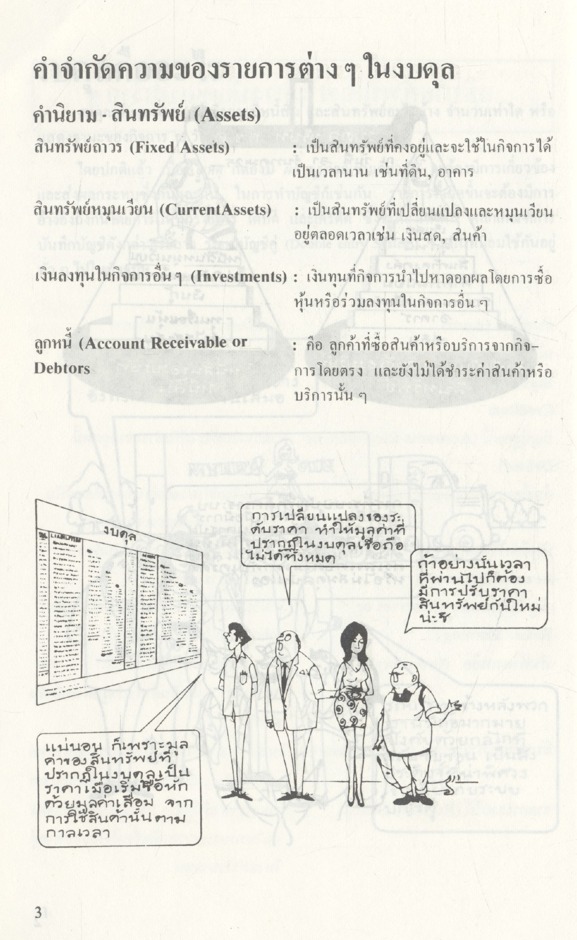 คำจำกัดความของรายการต่าง ๆ ในงบดุล
คำนิยาม - สินทรัพย์ (Assets)
สินทรัพย์ถาวร (Fixed Assets) : เป็นสินทรัพย์ที่คงอยู่และจะใช้ในกิจการได้
เป็นเวลานาน เช่นที่ดิน, อาคาร
สินทรัพย์หมุนเวียน (CurrentAssets) : เป็นสินทรัพย์ที่เปลี่ยนแปลงและหมุนเวียน
อยู่ตลอดเวลาเช่น เงินสด, สินค้า
เงินลงทุนในกิจการอื่น ๆ (Investments) : เงินทุนที่กิจการนำไปหาดอกผลโดยการซื้อ
หุ้นหรือร่วมลงทุนในกิจการอื่น ๆ
ลูกหนี้ (Account Receivable or : คือ ลูกค้าที่ซื้อสินค้าหรือบริการจากกิจ-
Debtors การโดยตรง และยังไม่ได้ชำระค่าสินค้าหรือ
บริการนั้น ๆ
งบดุล
การเปลี่ยนแปลงของระ
ดับราคา ทำให้มูลค่าที่
ปรากฏในงบดุลเชื่อถือ
ไม่ได้ทั้งหมด
ถ้าอย่างนั้นเวลา
ที่ผ่านไปก็ต้อง
มีการปรับราคา
สินทรัพย์กันใหม่
น่ะซิ
แน่นอน ก็เพราะมูล
ค่าของสินทรัพย์ที่
ปรากฏในงบดุลเป็น
ราคาเมื่อเริ่มซื้อหัก
ด้วยมูลค่าเสื่อม จาก
การใช้สินค้านั้นตาม
กาลเวลา
3